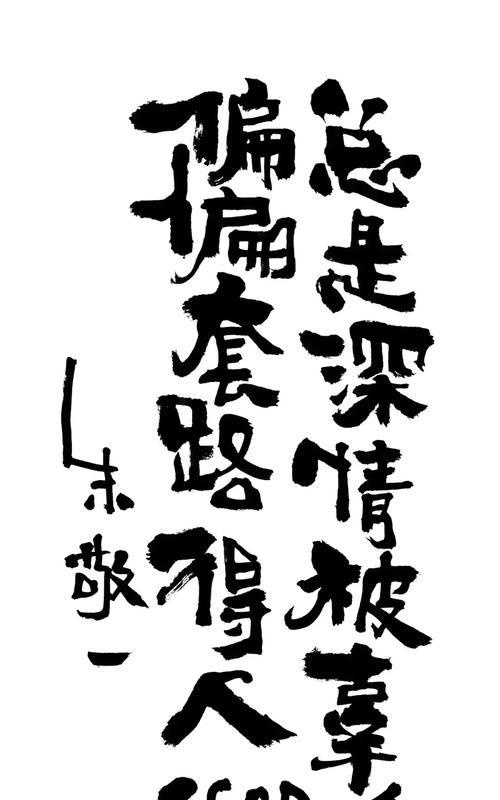 总是深情被辜
偏偏套路得人
朱敬一